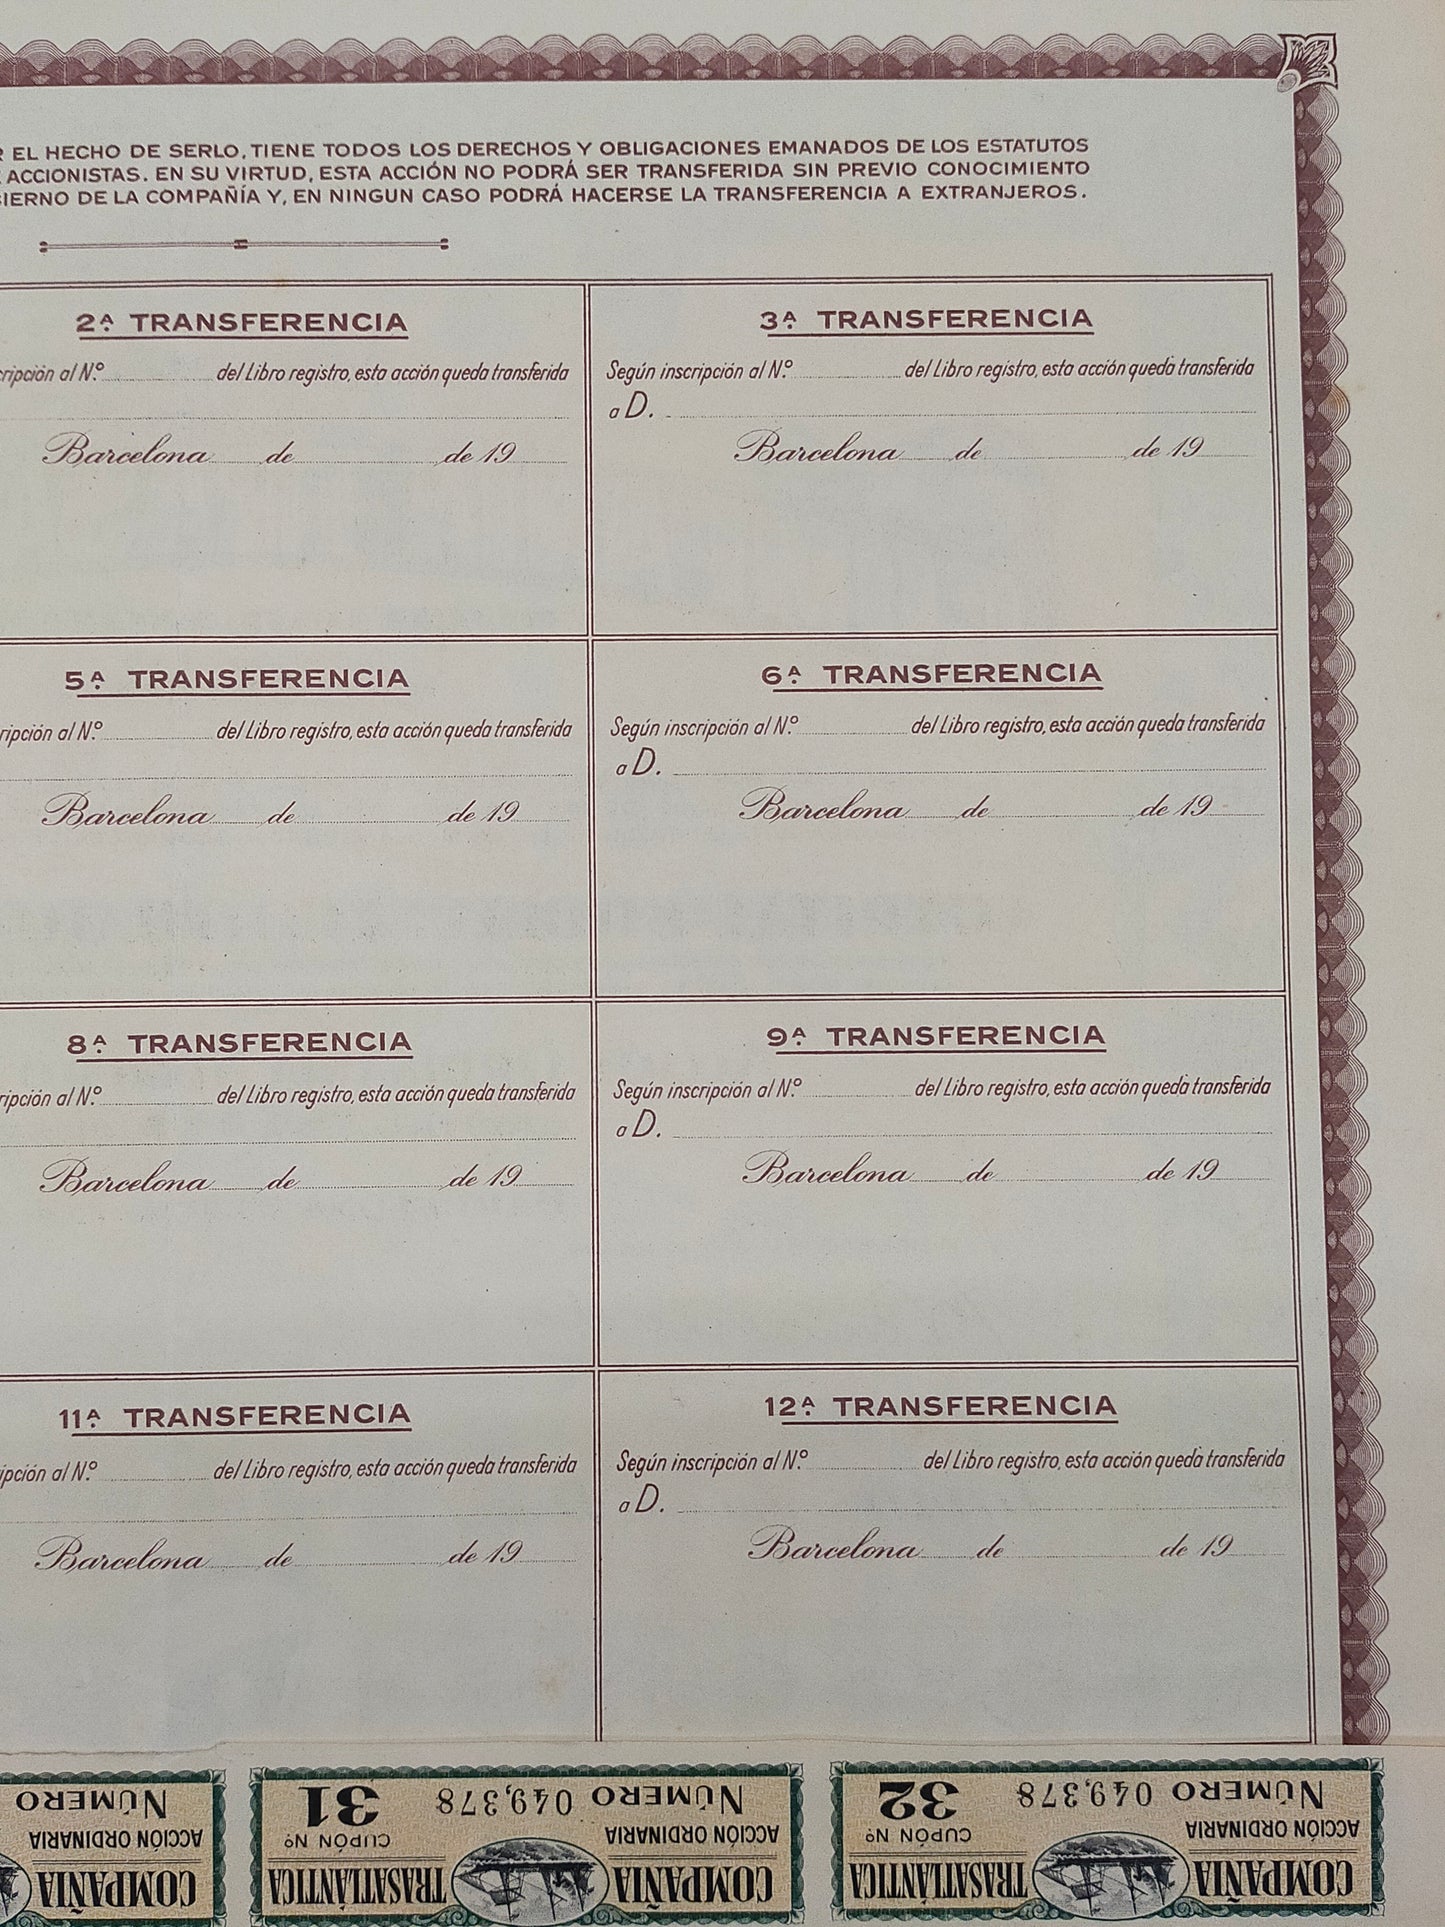 EL HECHO DE SERLO, TIENE TODOS LOS DERECHOS Y OBLIGACIONES EMANADOS DE LOS ESTATUTOS
ACCIONISTAS. EN SU VIRTUD, ESTA ACCIÓN NO PODRÁ SER TRANSFERIDA SIN PREVIO CONOCIMIENTO
IERNO DE LA COMPAÑÍA Y, EN NINGUN CASO PODRÁ HACERSE LA TRANSFERENCIA A EXTRANJEROS.
2ª TRANSFERENCIA
cripción al N.º del Libro registro, esta acción queda transferida
Barcelona de de 19
3ª TRANSFERENCIA
Según inscripción al N.º del Libro registro, esta acción queda transferida
a D.
Barcelona de de 19
5ª TRANSFERENCIA
ripción al N.º del Libro registro, esta acción queda transferida
Barcelona de de 19
6ª TRANSFERENCIA
Según inscripción al N.º del Libro registro, esta acción queda transferida
a D.
Barcelona de de 19
8ª TRANSFERENCIA
ripción al N.º del Libro registro, esta acción queda transferida
Barcelona de de 19
9ª TRANSFERENCIA
Según inscripción al N.º del Libro registro, esta acción queda transferida
a D.
Barcelona de de 19
11ª TRANSFERENCIA
ipción al N.º del Libro registro, esta acción queda transferida
Barcelona de de 19
12ª TRANSFERENCIA
Según inscripción al N.º del Libro registro, esta acción queda transferida
a D.
Barcelona de de 19
COMPAÑIA TRASATLÁNTICA
ACCIÓN ORDINARIA CUPÓN Nº
NÚMERO 049,378 32
COMPAÑIA TRASATLÁNTICA
ACCIÓN ORDINARIA CUPÓN Nº
NÚMERO 049,378 31
COMPAÑIA
ACCIÓN ORDINARIA
NÚMERO